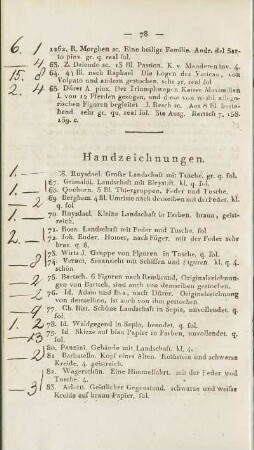 — 78 —
6. 1 1262. R. Morghen sc. Eine heilige Familie. Andr. del Sar-
to pinx. gr. q. real fol.
4 63. Z. Dolendo sc. 13 Bl. Passion. K. v. Mandereu inv. 4.
15. 8 64. 43 Bl. nach Raphael Die Logen des Vatican, von
Volpato und andern gestochen. sehr gr. real fol
2. 4 65. Dürer A. pinx. Der Triumphwagen Kaiser Maximilian
I. von 12 Pferden gezogen, und diese von weibl. allego-
rischen Figuren begleitet J. Resch sc. Aus 8 Bl. beste-
hend. sehr gr. qu. real fol. 5te Ausg. Bartsch 7. 158.
139. c.
Handzeichnungen.
1. — 66. Ruysdael. Große Landschaft mit Tusche, gr. q. fol.
67. Grimaldi. Landschaft mit Bleystift. kl. q. fol.
1. — 68. Queborn. 5 Bl. Thiergruppen. Feder und Tusche.
2 69. Berghem. 4 Bl. Umrisse nach demselben mit der Feder. kl.
q. fol.
1. — 70. Ruysdael. Kleine Landschaft in Farben. braun, geist-
reich.
71. Roos. Landschaft mit Feder und Tusche. fol.
2. — 72. Joh. Ender. Homer, nach Füger. mit der Feder sehr
brav. q. 8.
73. Wirts J. Gruppe von Figuren, in Tusche. fol.
8 74. Vernet. Seeansicht mit Schiffen und Figuren. kl. q.
4.
2 75. Bartsch. 6 Figuren nach Rembrand, Originalzeichnun-
gen von Bartsch, sind auch von demselben gestochen.
76. Id. Adam und Eva, nach Dürer. Originalzeichnung
von demselben, ist auch von ihm gestochen.
9 77. Ch. Bizr. Schöne Landschaft in Sepia, unvollendet. q.
fol.
1. 2 78. Id. Waldgegend in Sepia, beendet, q. fol.
13 79. Id. Skizze auf blau Papier in Farben, unvollendet. q.
fol.
— 2 80. Pannini. Gebäude mit Landschaft. kl. 4.
2 81. Barbatello. Kopf eines Alten. Rothstein und schwarze
Kreide, 4. geistreich.
82. Wagerschön. Eine Himmelfahrt. mit der Feder und
Tusche. 4.
— 3 83. Geistlicher Gegenstand. schwarze und weiße
Kreide auf braun Papier, fol.